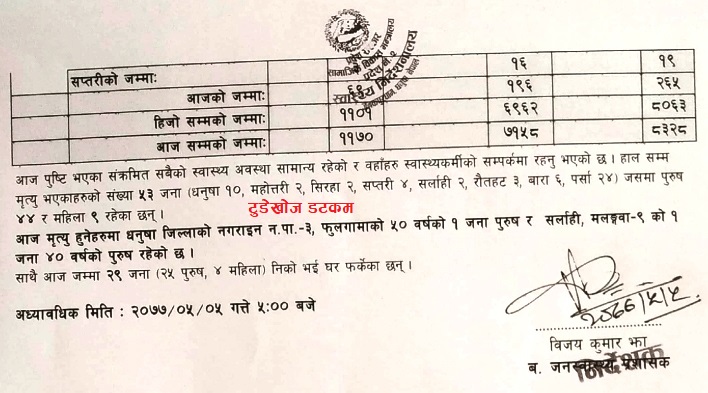 प्रदेश सरकार
सामाजिक विकास मन्त्रालय
प्रदेश नं. २
स्वास्थ्य निर्देशनालय
सप्तरीको जम्माः १६ १९
आजको जम्माः ६९ १९६ २६५
हिजो सम्मको जम्माः ११०१ ६९६२ ८०६३
आज सम्मको जम्माः ११७० ७१५८ ८३२८
आज पुष्टि भएका संक्रमित सबैको स्वास्थ्य अवस्था सामान्य रहेको र वहाँहरु स्वास्थ्यकर्मीको सम्पर्कमा रहनु भएको छ । हाल सम्म
मृत्यु भएकाहरुको संख्या ५३ जना (धनुषा १०, महोत्तरी २, सिरहा २, सप्तरी ४, सर्लाही २, रौतहट ३, बारा ६, पर्सा २४) जसमा पुरुष
४४ र महिला ९ रहेका छन् ।
टुडेखोज डटकम
आज मृत्यु हुनेहरुमा धनुषा जिल्लाको नगराइन न.पा.-३, फुलगामाको ५० वर्षको १ जना पुरुष र सर्लाही, मलङ्गवा-९ को १
जना ४० वर्षको पुरुष रहेको छ ।
साथै आज जम्मा २९ जना (२५ पुरुष, ४ महिला) निको भई घर फर्केका छन् ।
अध्यावधिक मिति : २०७७/०५/०५ गत्ते ५:०० बजे
२०७७/५/५
विजय कुमार झा
ब. जनस्वास्थ्य प्रशासक
निर्देशक